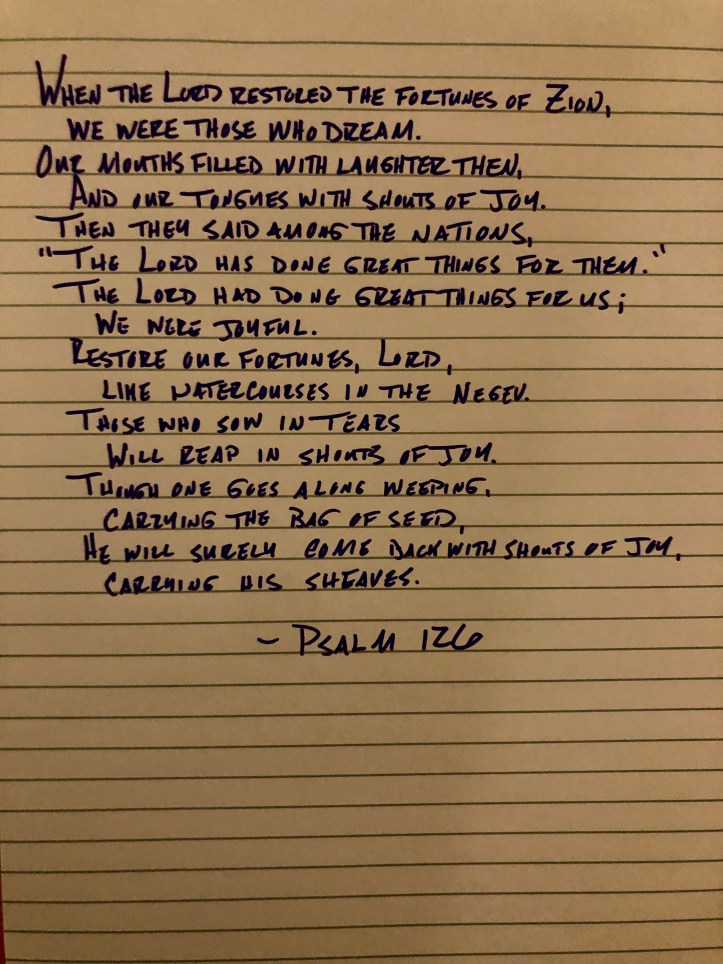 When the Lord restored the fortunes of Zion,
we were those who dream.
Our mouths filled with laughter then,
And our tongues with shouts of joy.
Then they said among the nations,
"The Lord has done great things for them."
The Lord had done great things for us;
We were joyful.
Restore our fortunes, Lord,
like watercourses in the Negev.
Those who sow in tears
will reap in shouts of joy.
Though one goes along weeping,
carrying the bag of seed,
He will surely come back with shouts of joy,
carrying his sheaves.
~ Psalm 126